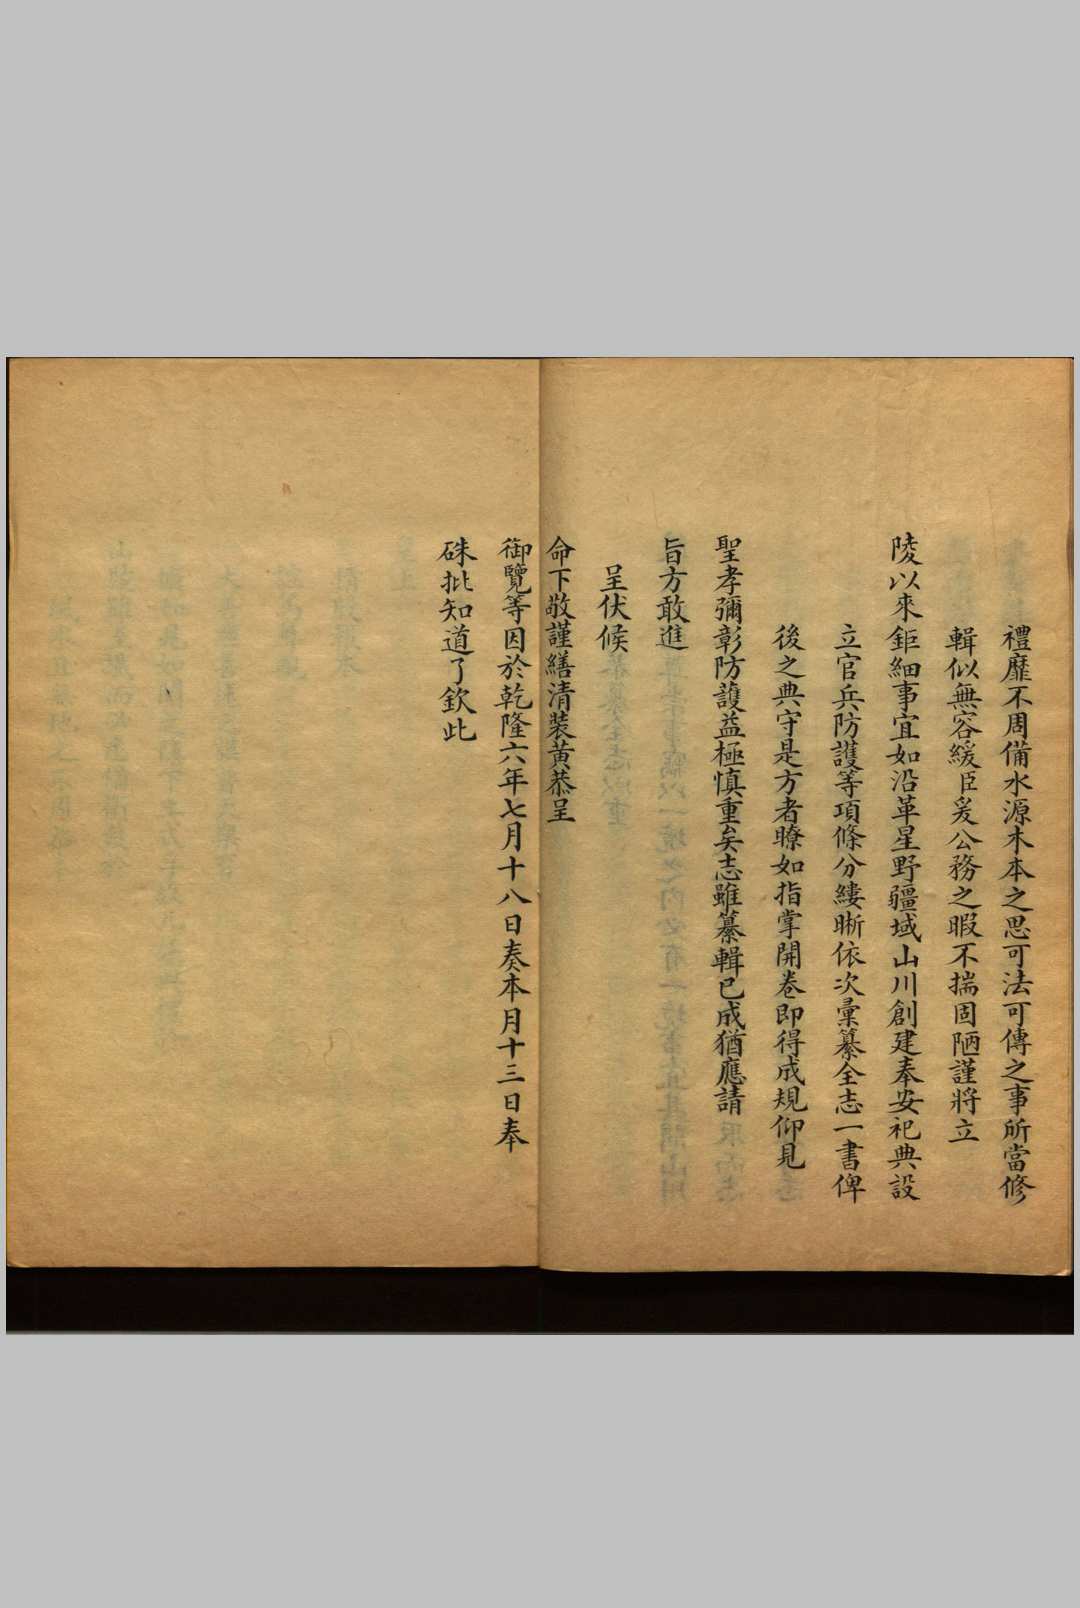 禮靡不周備水源木本之思可法可傳之事所當修
輯似無容緩臣爰公務之暇不揣固陋謹將立
陵以來鉅細事宜如沿革星野疆域山川創建奉安祀典設
立官兵防護等項條分縷晰依次彙纂全志一書俾
後之典守是方者瞭如指掌開卷即得成規仰見
聖孝彌彰防護益極慎重矣志雖纂輯已成猶應請
旨方敢進
呈伏候
命下敬謹繕清裝黄恭呈
御覽等因於乾隆六年七月十八日奏本月十三日奉
硃批知道了欽此